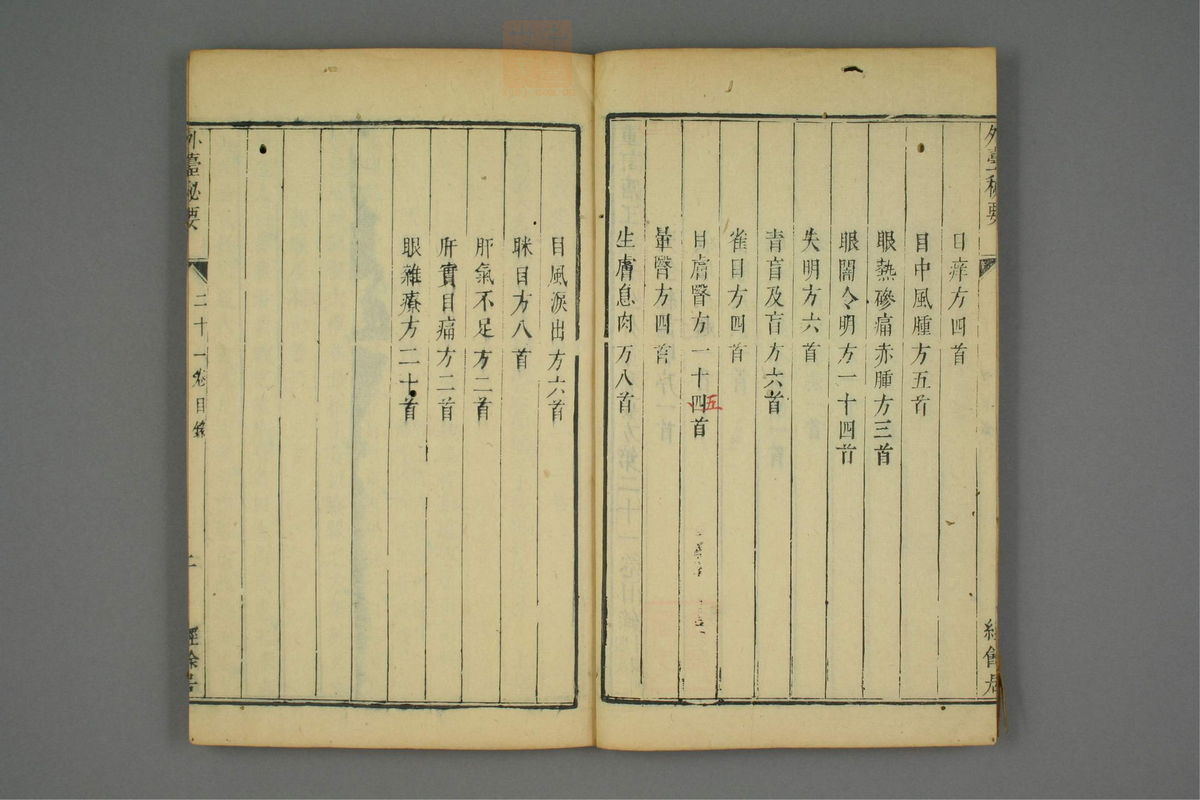 外臺秘要
目痒方四首
目中風腫方五首
眼熱磣痛赤腫方三首
眼闇令明方一十四首
失明方六首
青盲及盲方六首
雀目方四首
目膚翳方一十四首
五
暈翳方四首
生膚息肉方八首
目風淚出方六首
眯目方八首
肝氣不足方二首
肝實目痛方二首
眼雜療方二十首
外臺秘要
二十一卷目錄
二
經餘居